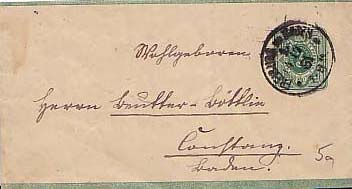 Wohlgeboren
Herrn Beutter-Böttlin
Constanz.
Baden.
5a